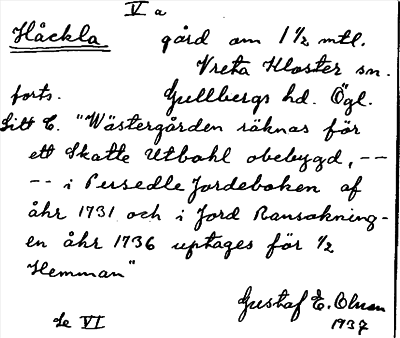 V a
Håckla gård om 1 1/2 mtl.
Vreta Kloster sn.
forts. Gullbergs hd. Ögl.
Litt C. "Wästergården räknas för
ett Skatte Utbohl obebygd, --
-- i Persedle Jordeboken af
åhr 1731 och i Jord Ransakning-
en åhr 1736 uptages för 1/2
Hemman"
Gustaf E. Olsson
Se VI 1937